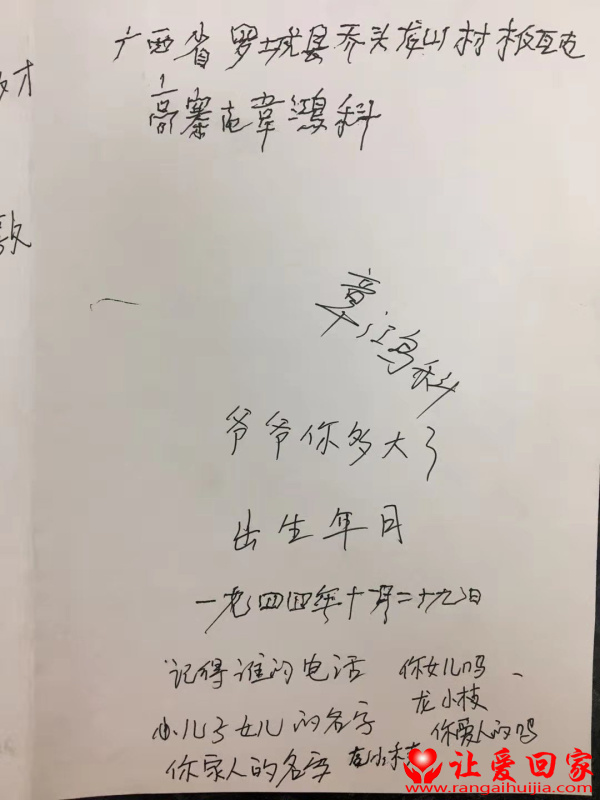 广西省罗城县乔头龙山村板瓦屯
高寨屯韦鸿科
章鸿科
爷爷你多大了
出生年月
一九四四年十月二十九日
记得谁的电话 你女儿吗
龙小枝
小儿子女儿的名字 你爱人的吗
你家人的名字 龙小枝
让爱回家
www.rangaihuijia.com